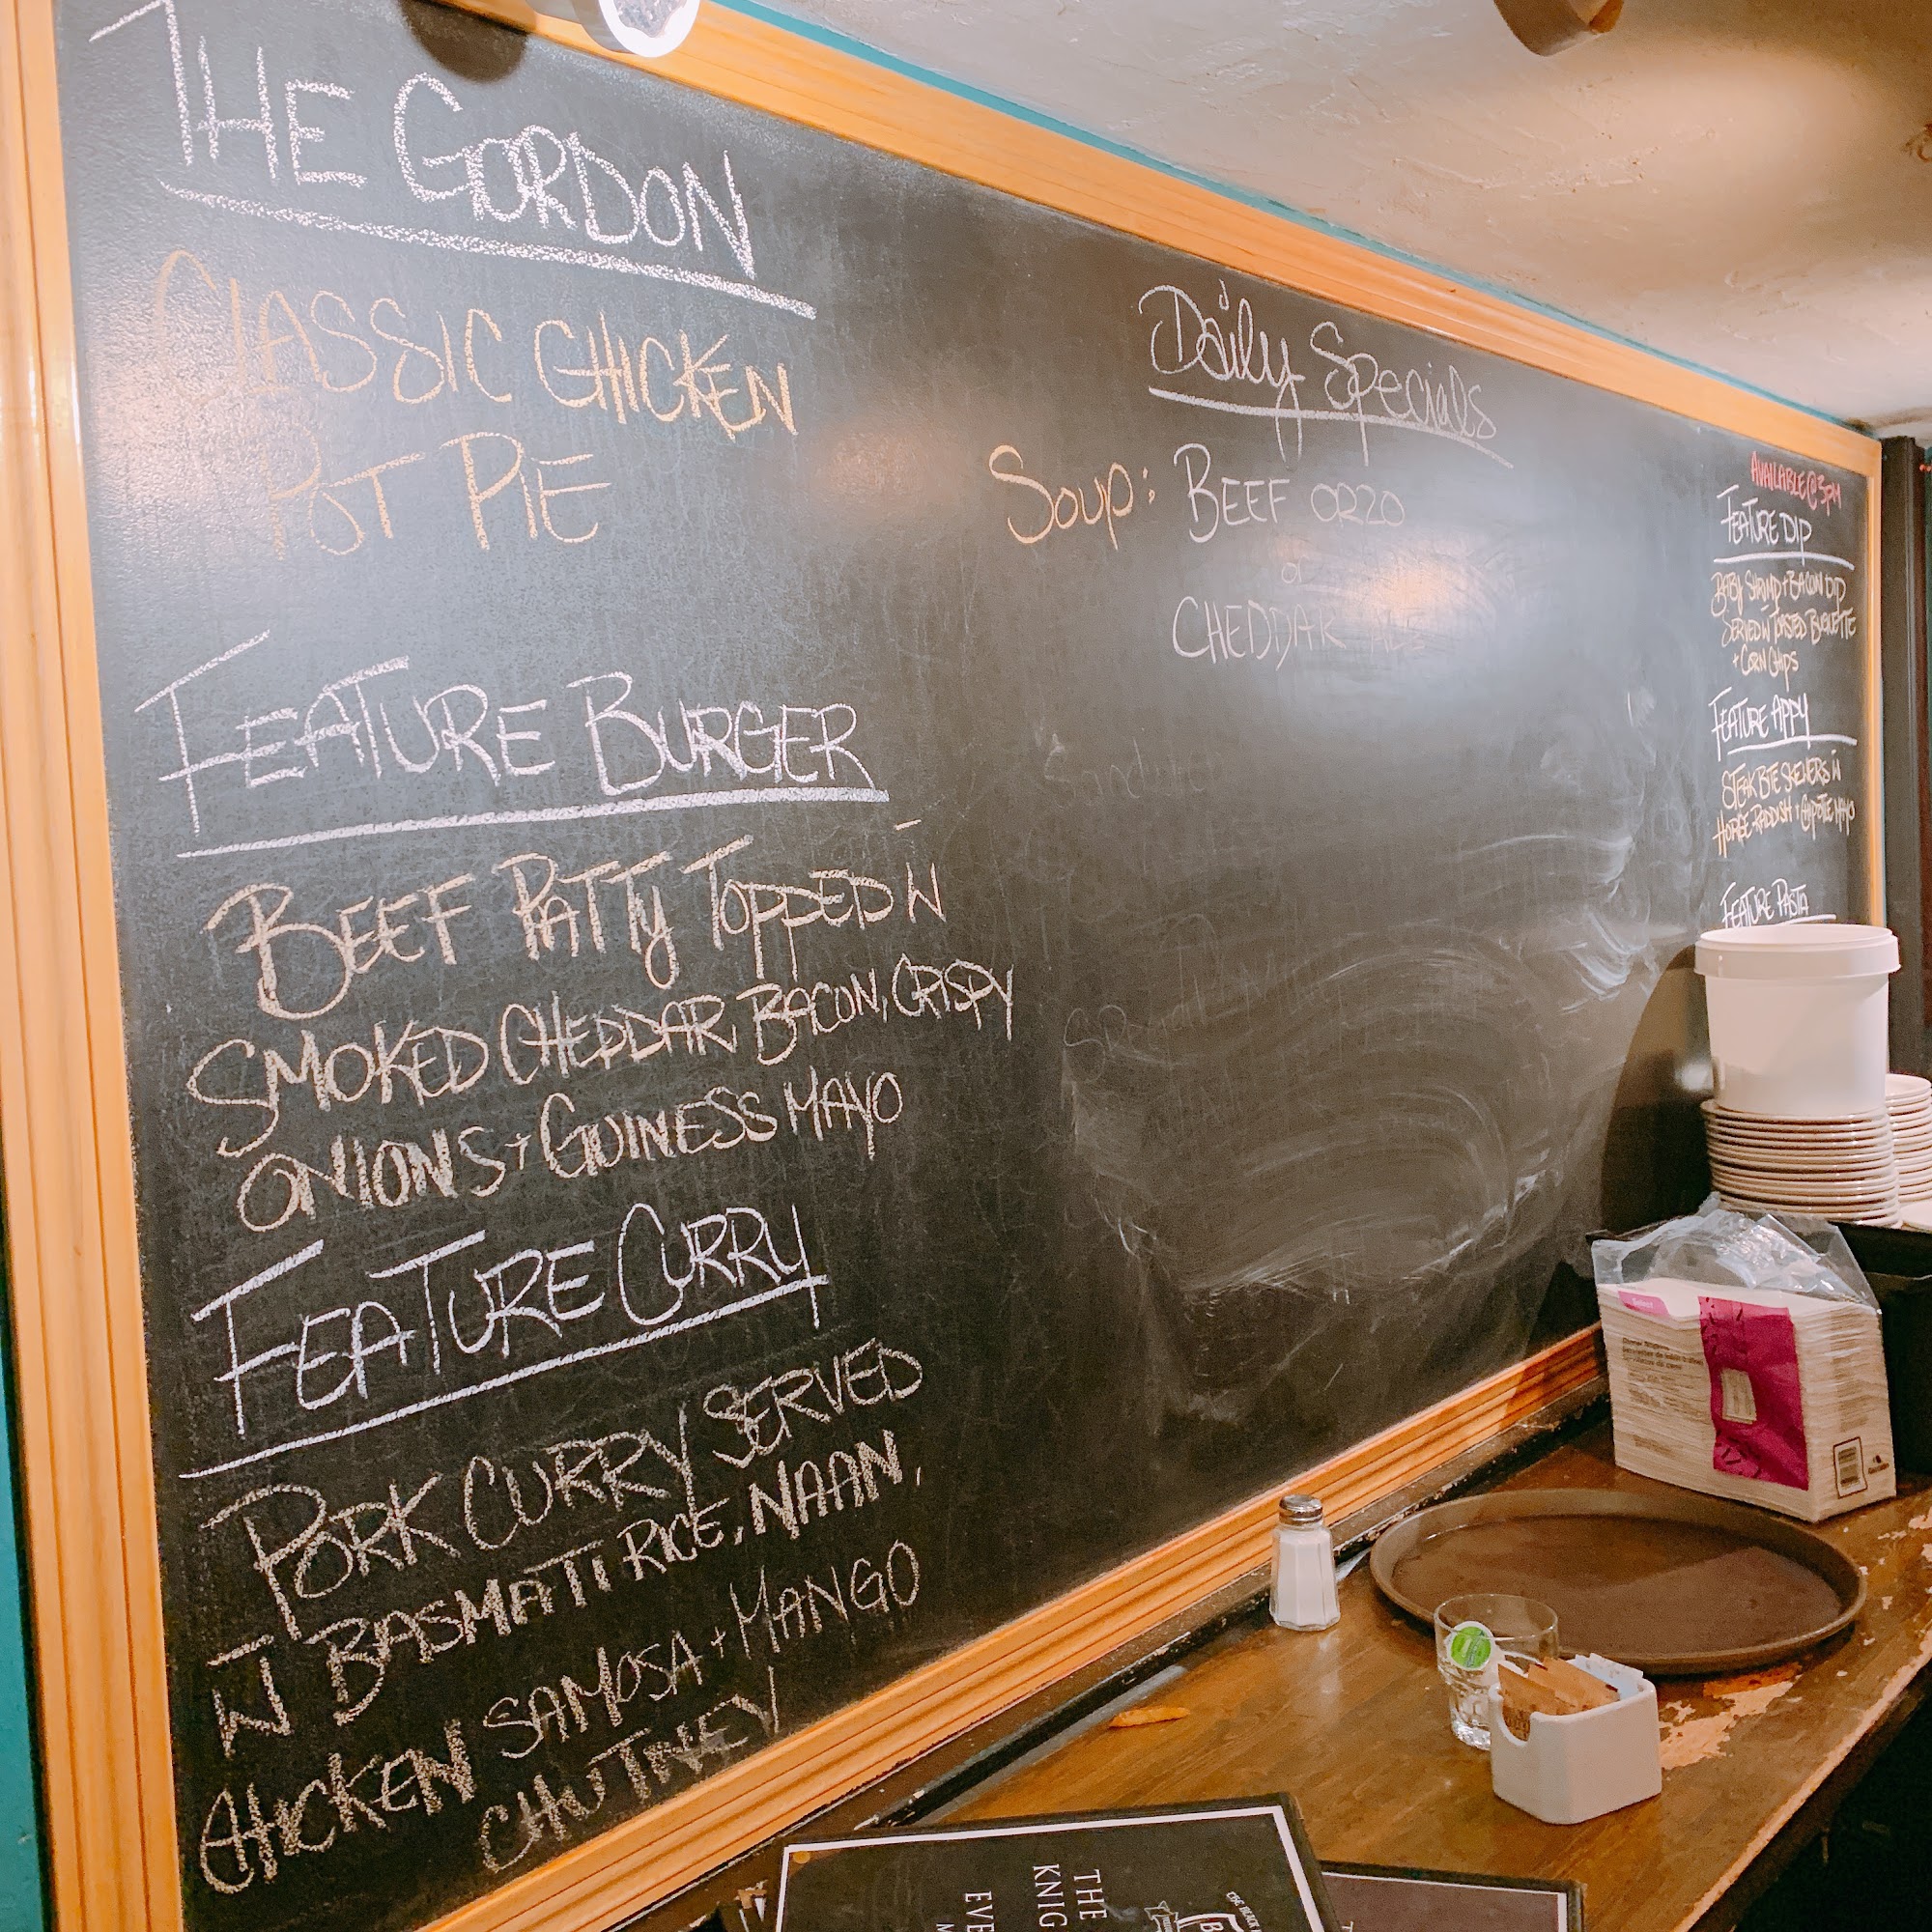 THE GORDON
CLASSIC CHICKEN
POT PIE
FEATURE BURGER
BEEF PATTY TOPPED W
SMOKED CHEDDAR, BACON, CRISPY
ONIONS + GUINESS MAYO
FEATURE CURRY
PORK CURRY SERVED
W BASMATI RICE, NAAN,
CHICKEN SAMOSA + MANGO
CHUTNEY
Daily Specials
Soup: BEEF ORZO
or
CHEDDAR ALE
AVAILABLE @ 3PM
FEATURE DIP
BABY SHRIMP + BACON DIP
SERVED W TOASTED BUGUETTE
+ CORN CHIPS
FEATURE APPY
STEAK BITE SKEWERS W
HORSE RADDISH + CHIPOTLE MAYO
FEATURE PASTA
Select
THE
KNIG
EVE